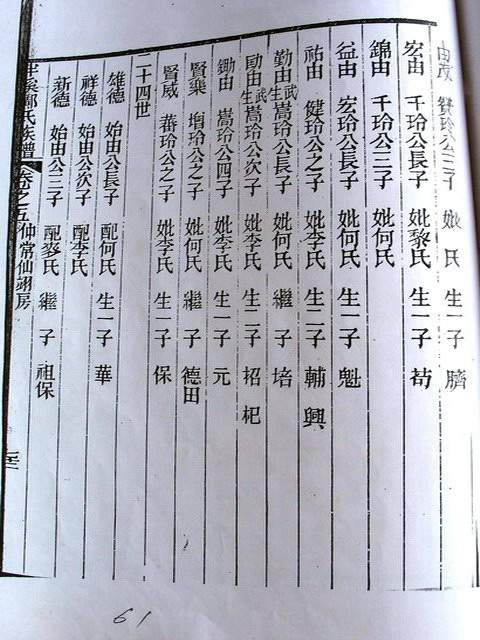 玲公三子 妣 氏 生一子 臍
宏由 千玲公長子 妣黎氏 生一子 苟
錦由 千玲公三子 妣何氏
益由 宏玲公長子 妣何氏 生一子 魁
祐由 健玲公之子 妣李氏 生二子 輔 興
勤由武生 嵩玲公長子 妣何氏 繼子 培
勛由武生 嵩玲公次子 妣李氏 生二子 招 杞
鋤由 嵩玲公四子 妣李氏 生一子 元
賢樂 玲公之子 妣何氏 繼子 德田
賢威 蕃玲公之子 妣李氏 生一子 保
二十四世
雄德 始由公長子 配何氏 生一子 華
祥德 始由公次子 配李氏
新德 始由公三子 配麥氏 繼子 祖保
溪鄭氏族譜 卷之五 仲常仙翊房
61